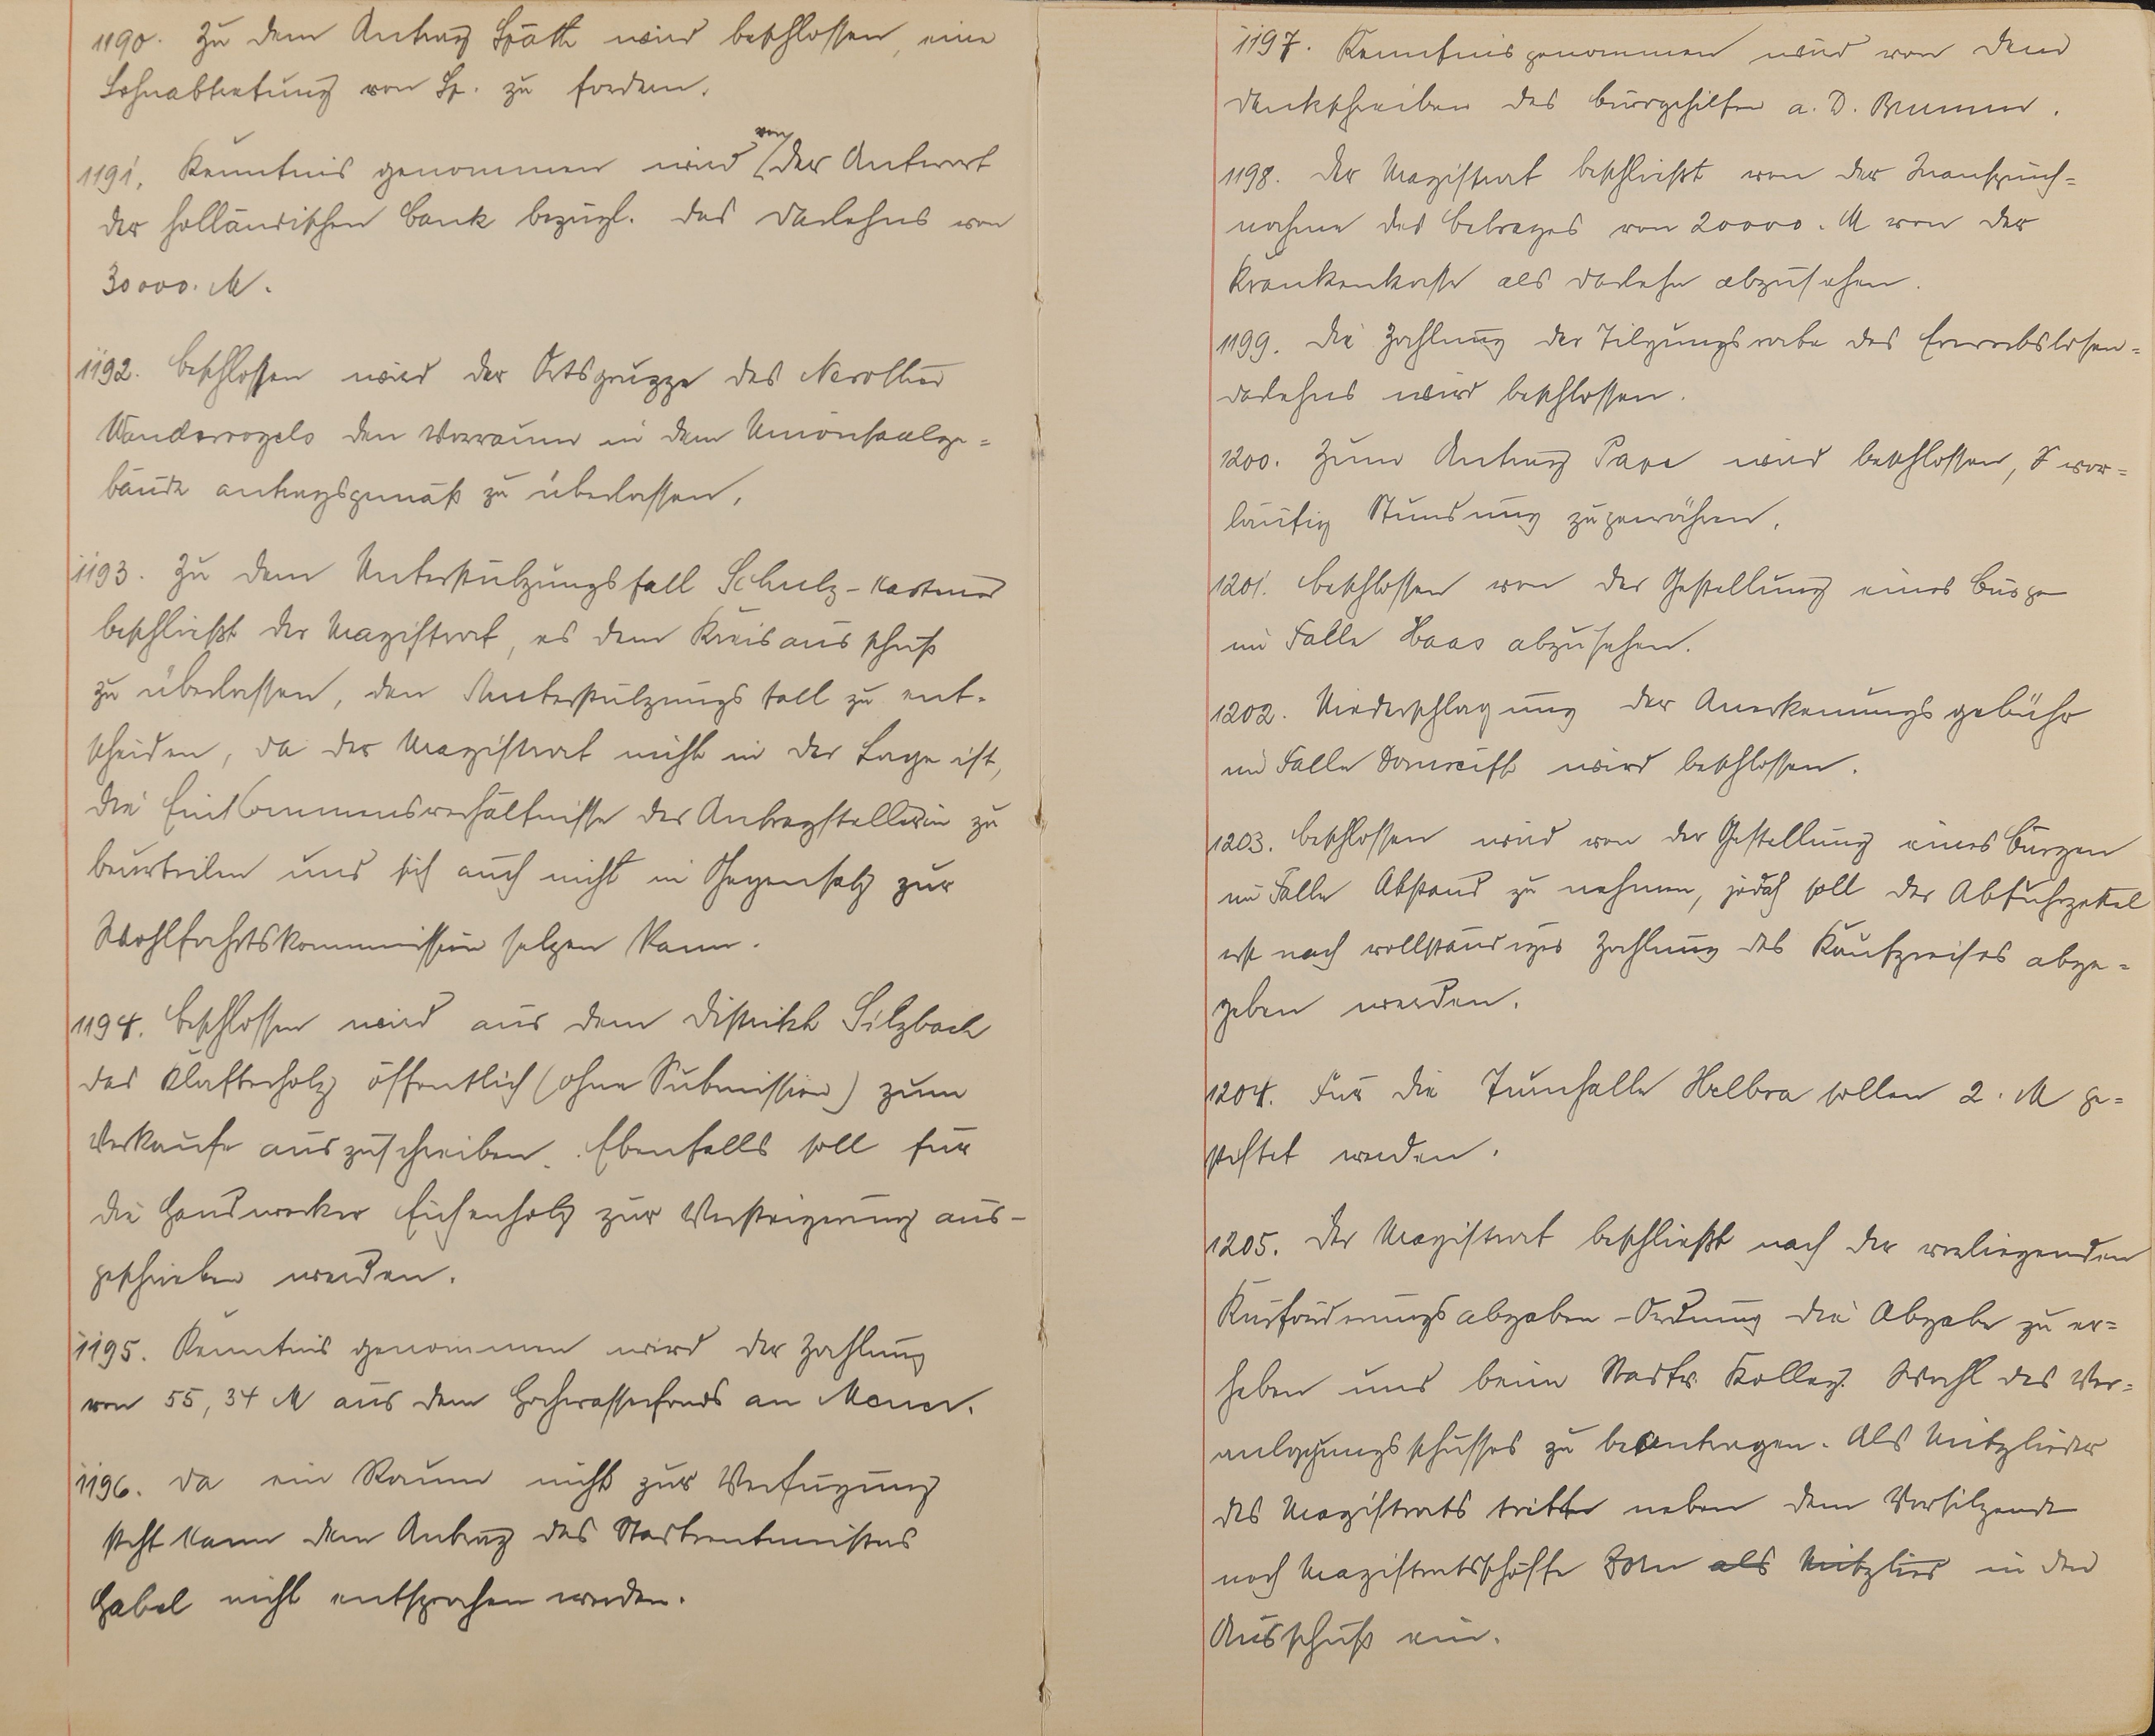 1190. Zu dem Antrag Späth wird beschlossen, eine
Lohnabtretung von Sp. zu fordern.
1191. Kenntnis genommen wird von der Antwort
der holländischen Bank bezügl. des Darlehns von
30000. M.
1192. Beschlossen wird der Ortsgruppe des
Wandervogels den Vorraum in dem Unionsaalge=
bäude antragsgemäß zu überlassen.
1193. Zu dem Unterstützungsfall Schulz-
beschließt der Magistrat, es dem Kreisausschuß
zu überlassen, den Unterstützungsfall zu ent-
scheiden, da der Magistrat nicht in der Lage ist,
die Einkommensverhältnisse der Antragstellerin zu
beurteilen und sich auch nicht in Gegensatz zur
Wohlfahrtskommission setzen kann.
1194. Beschlossen wird aus dem Distrikt Silzbach
das Klafterholz öffentlich (ohne Submission) zum
Verkaufe auszuschreiben. Ebenfalls soll für
die Handwerker Eichenholz zur Versteigerung aus-
geschrieben werden.
1195. Kenntnis genommen wird der Zahlung
von 55,34 M aus dem Hochwasserfonds an
1196. Da ein Raum nicht zur Verfügung
steht kann dem Antrag des Stadtrentmeisters
Gabel nicht entsprochen werden.
1197. Kenntnis genommen wird von dem
Dankschreiben des Bürogehilfen a. D.
1198. Der Magistrat beschließt von der Inanspruch=
nahme des Betrages von 20000. M von der
Krankenkasse als Darlehn abzusehen.
1199. Die Zahlung der Tilgungsrate des Erwerbslosen=
darlehns wird beschlossen.
1200. Zum Antrag Pape wird beschlossen, vor=
läufig Stundung zu gewähren.
1201. Beschlossen von der Gestellung eines Bürge
im Falle Haas abzusehen.
1202. Niederschlagung der Anerkenungsgebühr
im Falle wird beschlossen.
1203. Beschlossen wird von der Gestellung eines Bürgen
im Falle Abstand zu nehmen, jedoch soll der Abfuhrzettel
erst nach vollständiger Zahlung des Kaufpreises abge=
geben werden.
1204. Für die Turnhalle Helbra sollen 2. M ge=
stiftet werden.
1205. Der Magistrat beschließt nach der vorliegenden
Kurförderungsabgaben-Ordnung die Abgabe zu er=
heben und beim Stadtv. Kolleg. Wahl des Ver=
anlagungsschusses zu beantragen. Als Mitglieder
des Magistrats tritt neben dem Vorsitzende
noch Magistratsschöffe Zorn als Mitglied in den
Ausschuß ein.